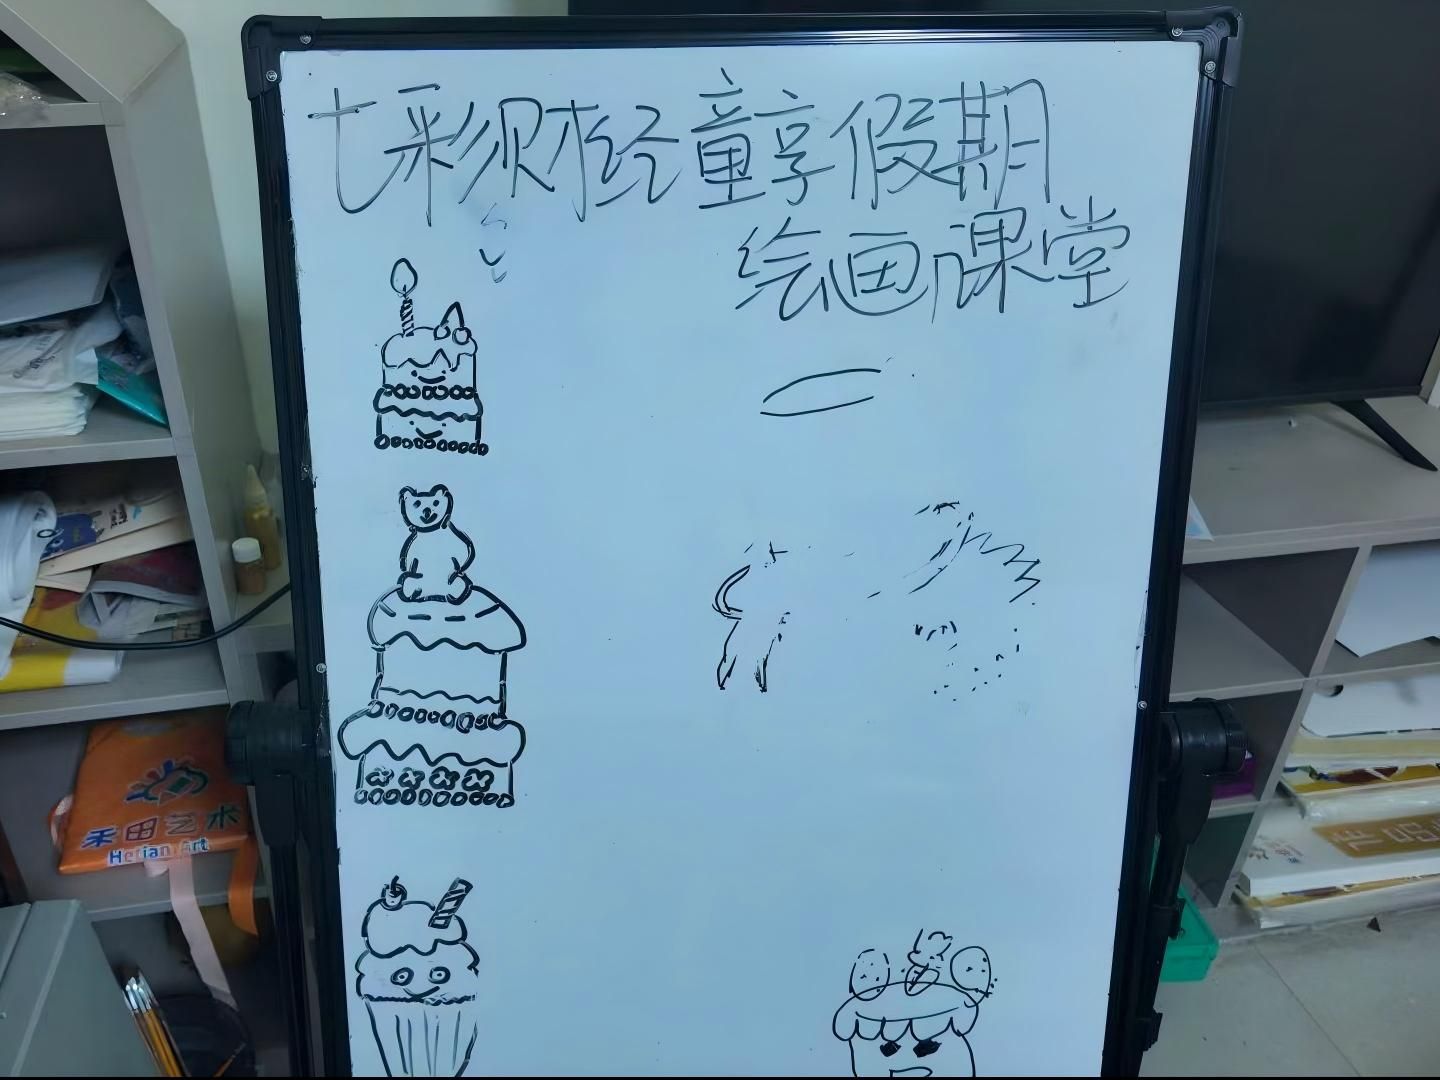 七彩须财经童享假期
绘画课堂
禾田艺术
Hetian Art